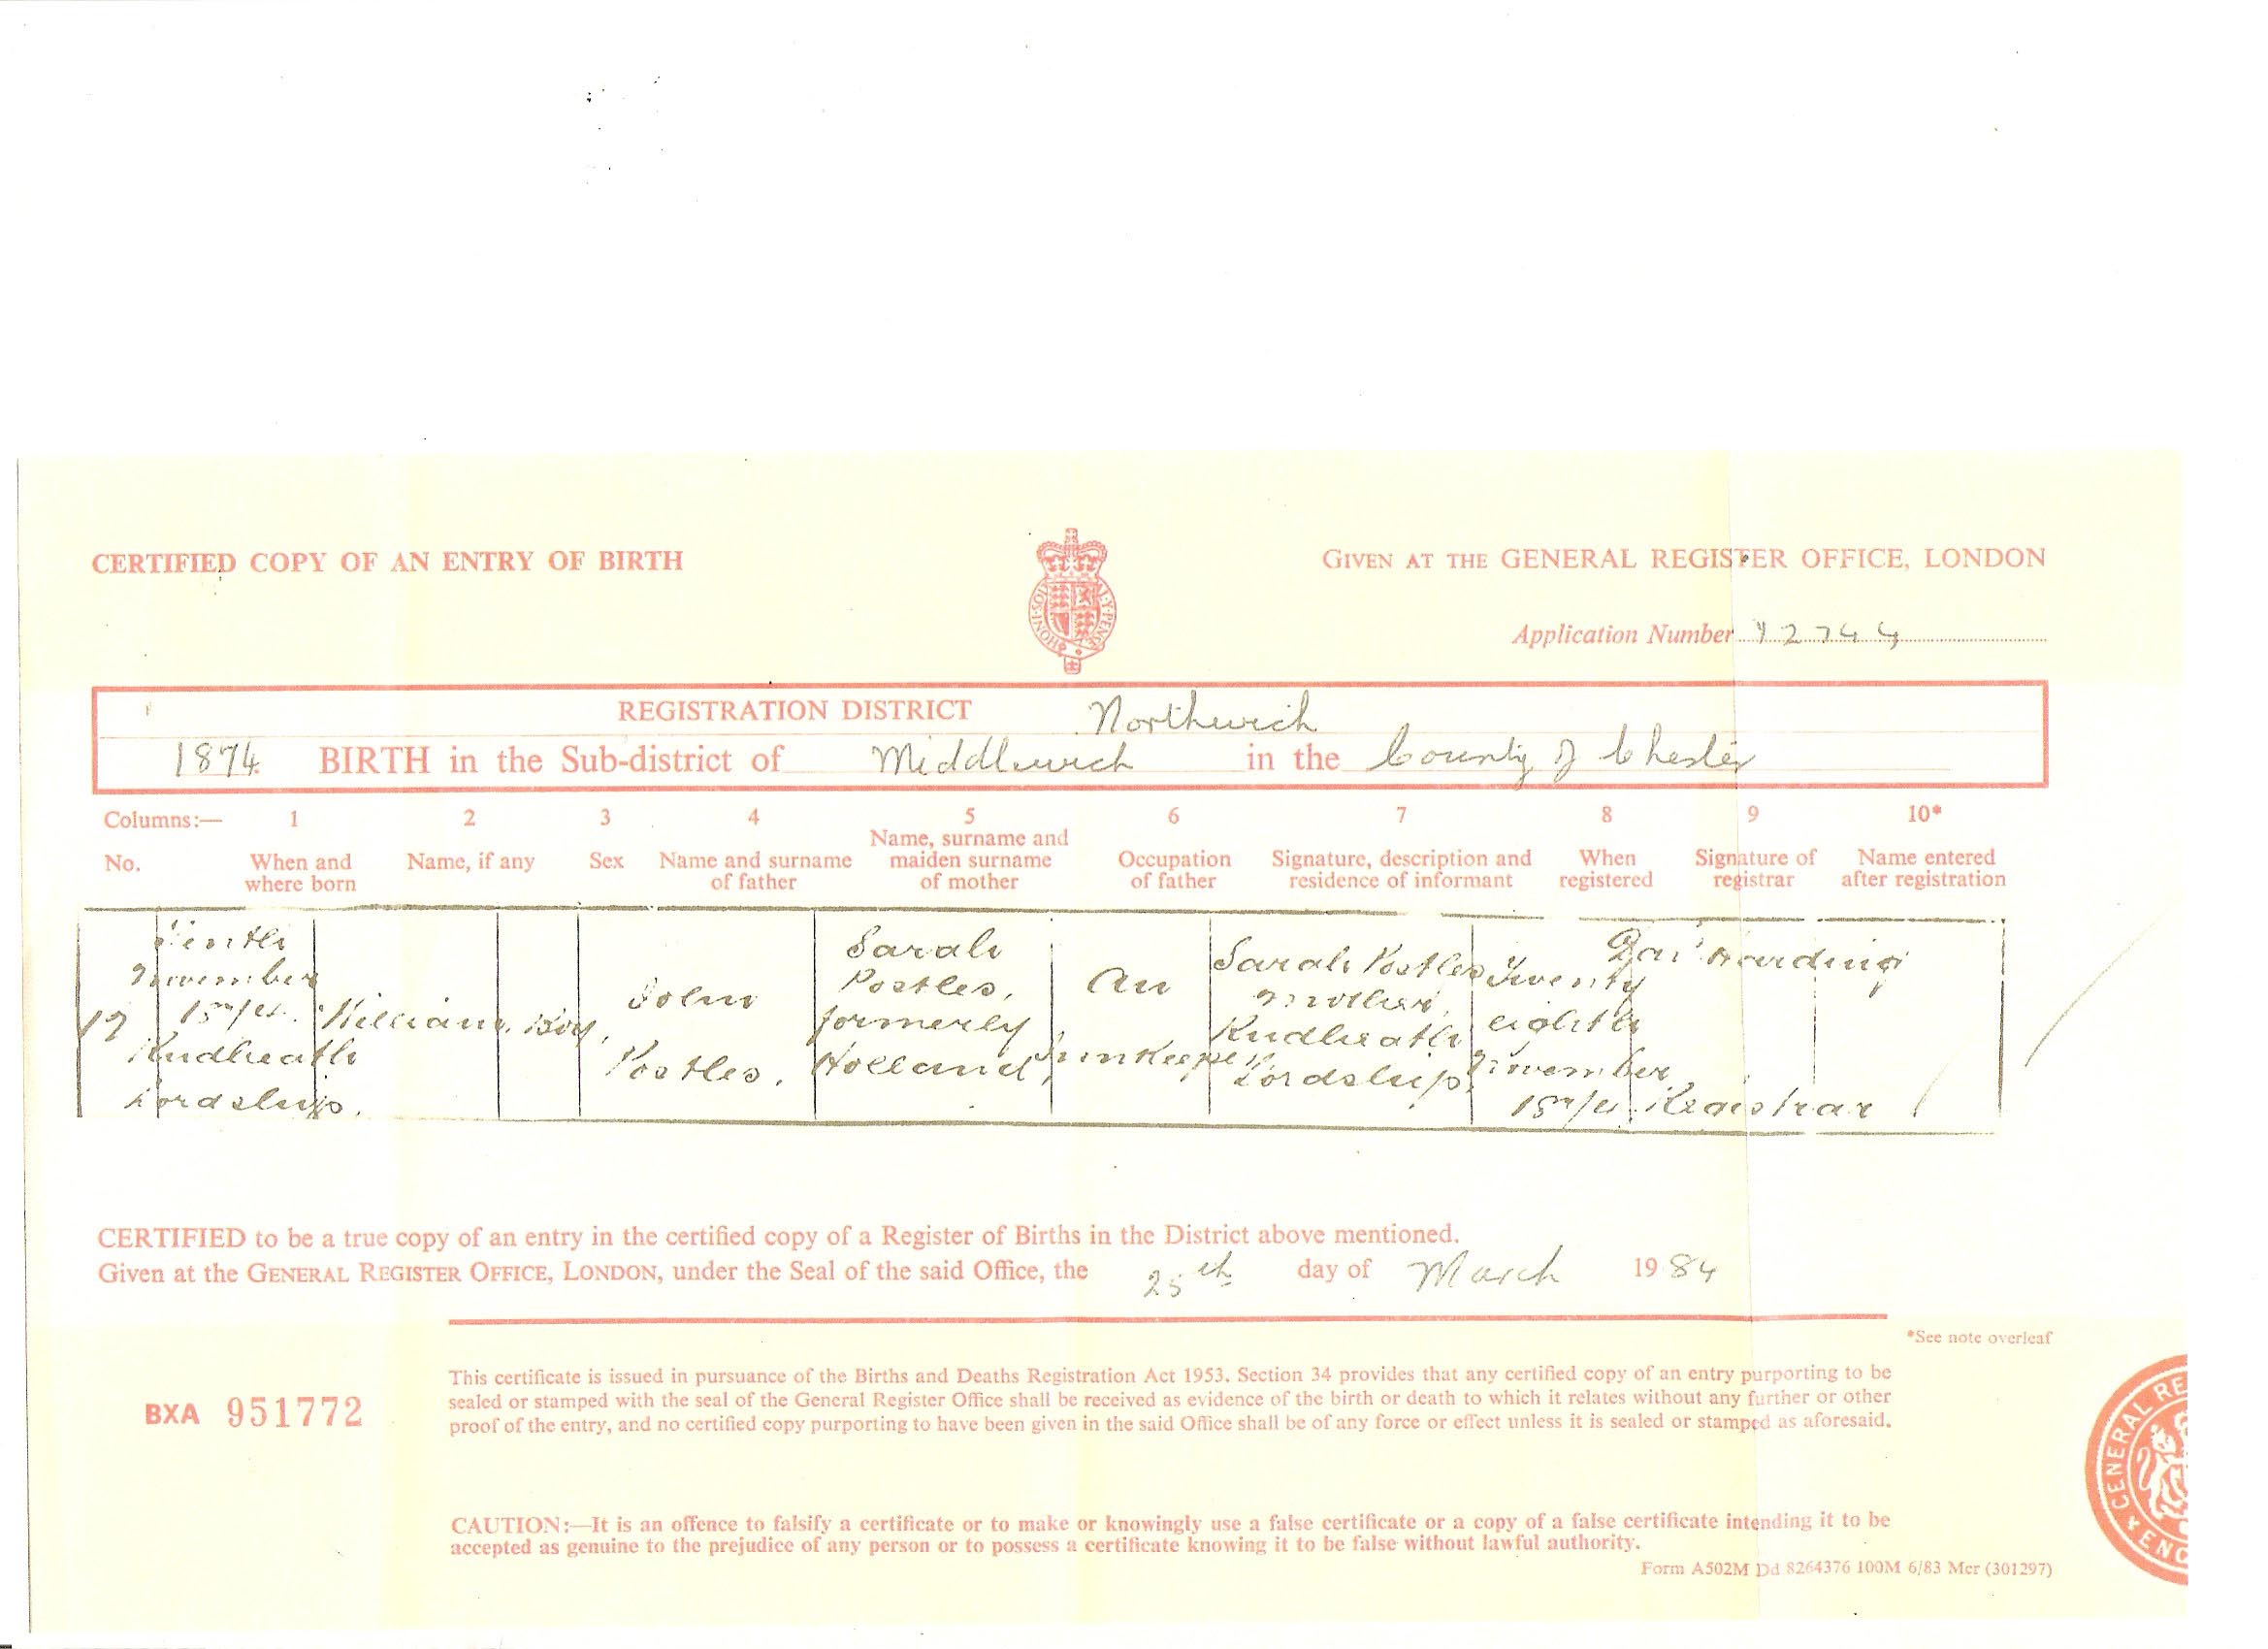 CERTIFIED COPY OF AN ENTRY OF BIRTH
GIVEN AT THE GENERAL REGISTER OFFICE, LONDON
HONI SOI Y PENSE
Application Number 12744
REGISTRATION DISTRICT Northwich
1874. BIRTH in the Sub-district of Middlewich in the County of Chester
Columns:— 1 2 3 4 5 6 7 8 9 10*
No.
When and
where born
Name, if any
Sex
Name and surname
of father
Name, surname and
maiden surname
of mother
Occupation
of father
Signature, description and
residence of informant
When
registered
Signature of
registrar
Name entered
after registration
17
November
1874.
Rudheath
Lordship.
William.
Boy.
John
Postles.
Sarah
Postles,
formerly
Holland,
An
Innkeeper
Sarah Postles
Mother,
Rudheath
Lordship,
Twenty
eighth
November
1874.
Harding
Registrar
CERTIFIED to be a true copy of an entry in the certified copy of a Register of Births in the District above mentioned.
Given at the GENERAL REGISTER OFFICE, LONDON, under the Seal of the said Office, the 25th day of March 1984
*See note overleaf
BXA 951772
This certificate is issued in pursuance of the Births and Deaths Registration Act 1953. Section 34 provides that any certified copy of an entry purporting to be
sealed or stamped with the seal of the General Register Office shall be received as evidence of the birth or death to which it relates without any further or other
proof of the entry, and no certified copy purporting to have been given in the said Office shall be of any force or effect unless it is sealed or stamped as aforesaid.
GENERAL RE
ENG
CAUTION:—It is an offence to falsify a certificate or to make or knowingly use a false certificate or a copy of a false certificate intending it to be
accepted as genuine to the prejudice of any person or to possess a certificate knowing it to be false without lawful authority.
Form A502M Dd 8264376 100M 6/83 Mcr (301297)